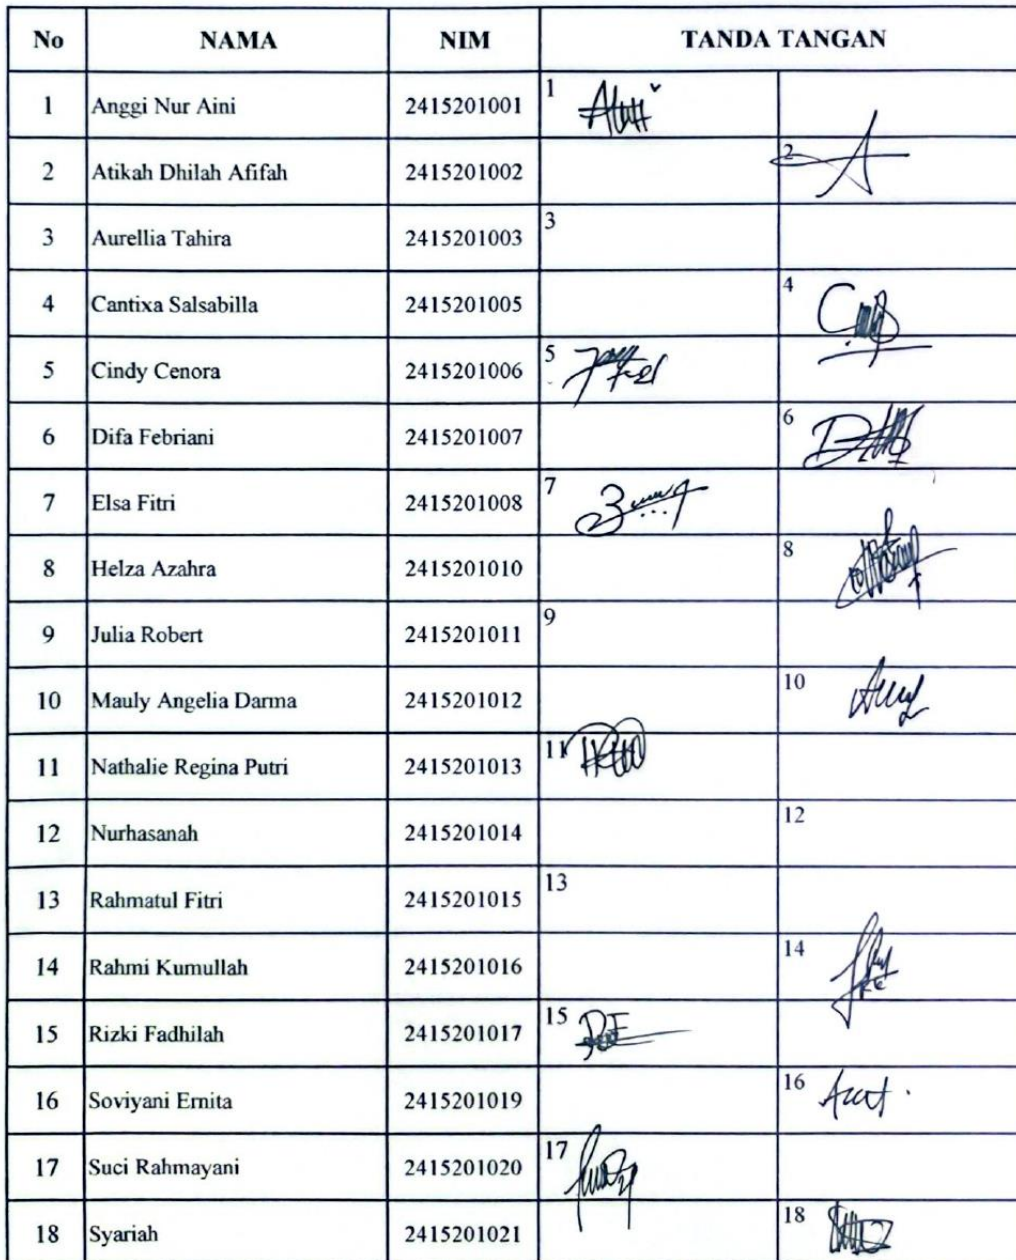 No NAMA NIM TANDA TANGAN
1 Anggi Nur Aini 2415201001 1
2 Atikah Dhilah Afifah 2415201002 2
3 Aurellia Tahira 2415201003 3
4 Cantixa Salsabilla 2415201005 4
5 Cindy Cenora 2415201006 5
6 Difa Febriani 2415201007 6
7 Elsa Fitri 2415201008 7
8 Helza Azahra 2415201010 8
9 Julia Robert 2415201011 9
10 Mauly Angelia Darma 2415201012 10
11 Nathalie Regina Putri 2415201013 11
12 Nurhasanah 2415201014 12
13 Rahmatul Fitri 2415201015 13
14 Rahmi Kumullah 2415201016 14
15 Rizki Fadhilah 2415201017 15
16 Soviyani Ernita 2415201019 16
17 Suci Rahmayani 2415201020 17
18 Syariah 2415201021 18